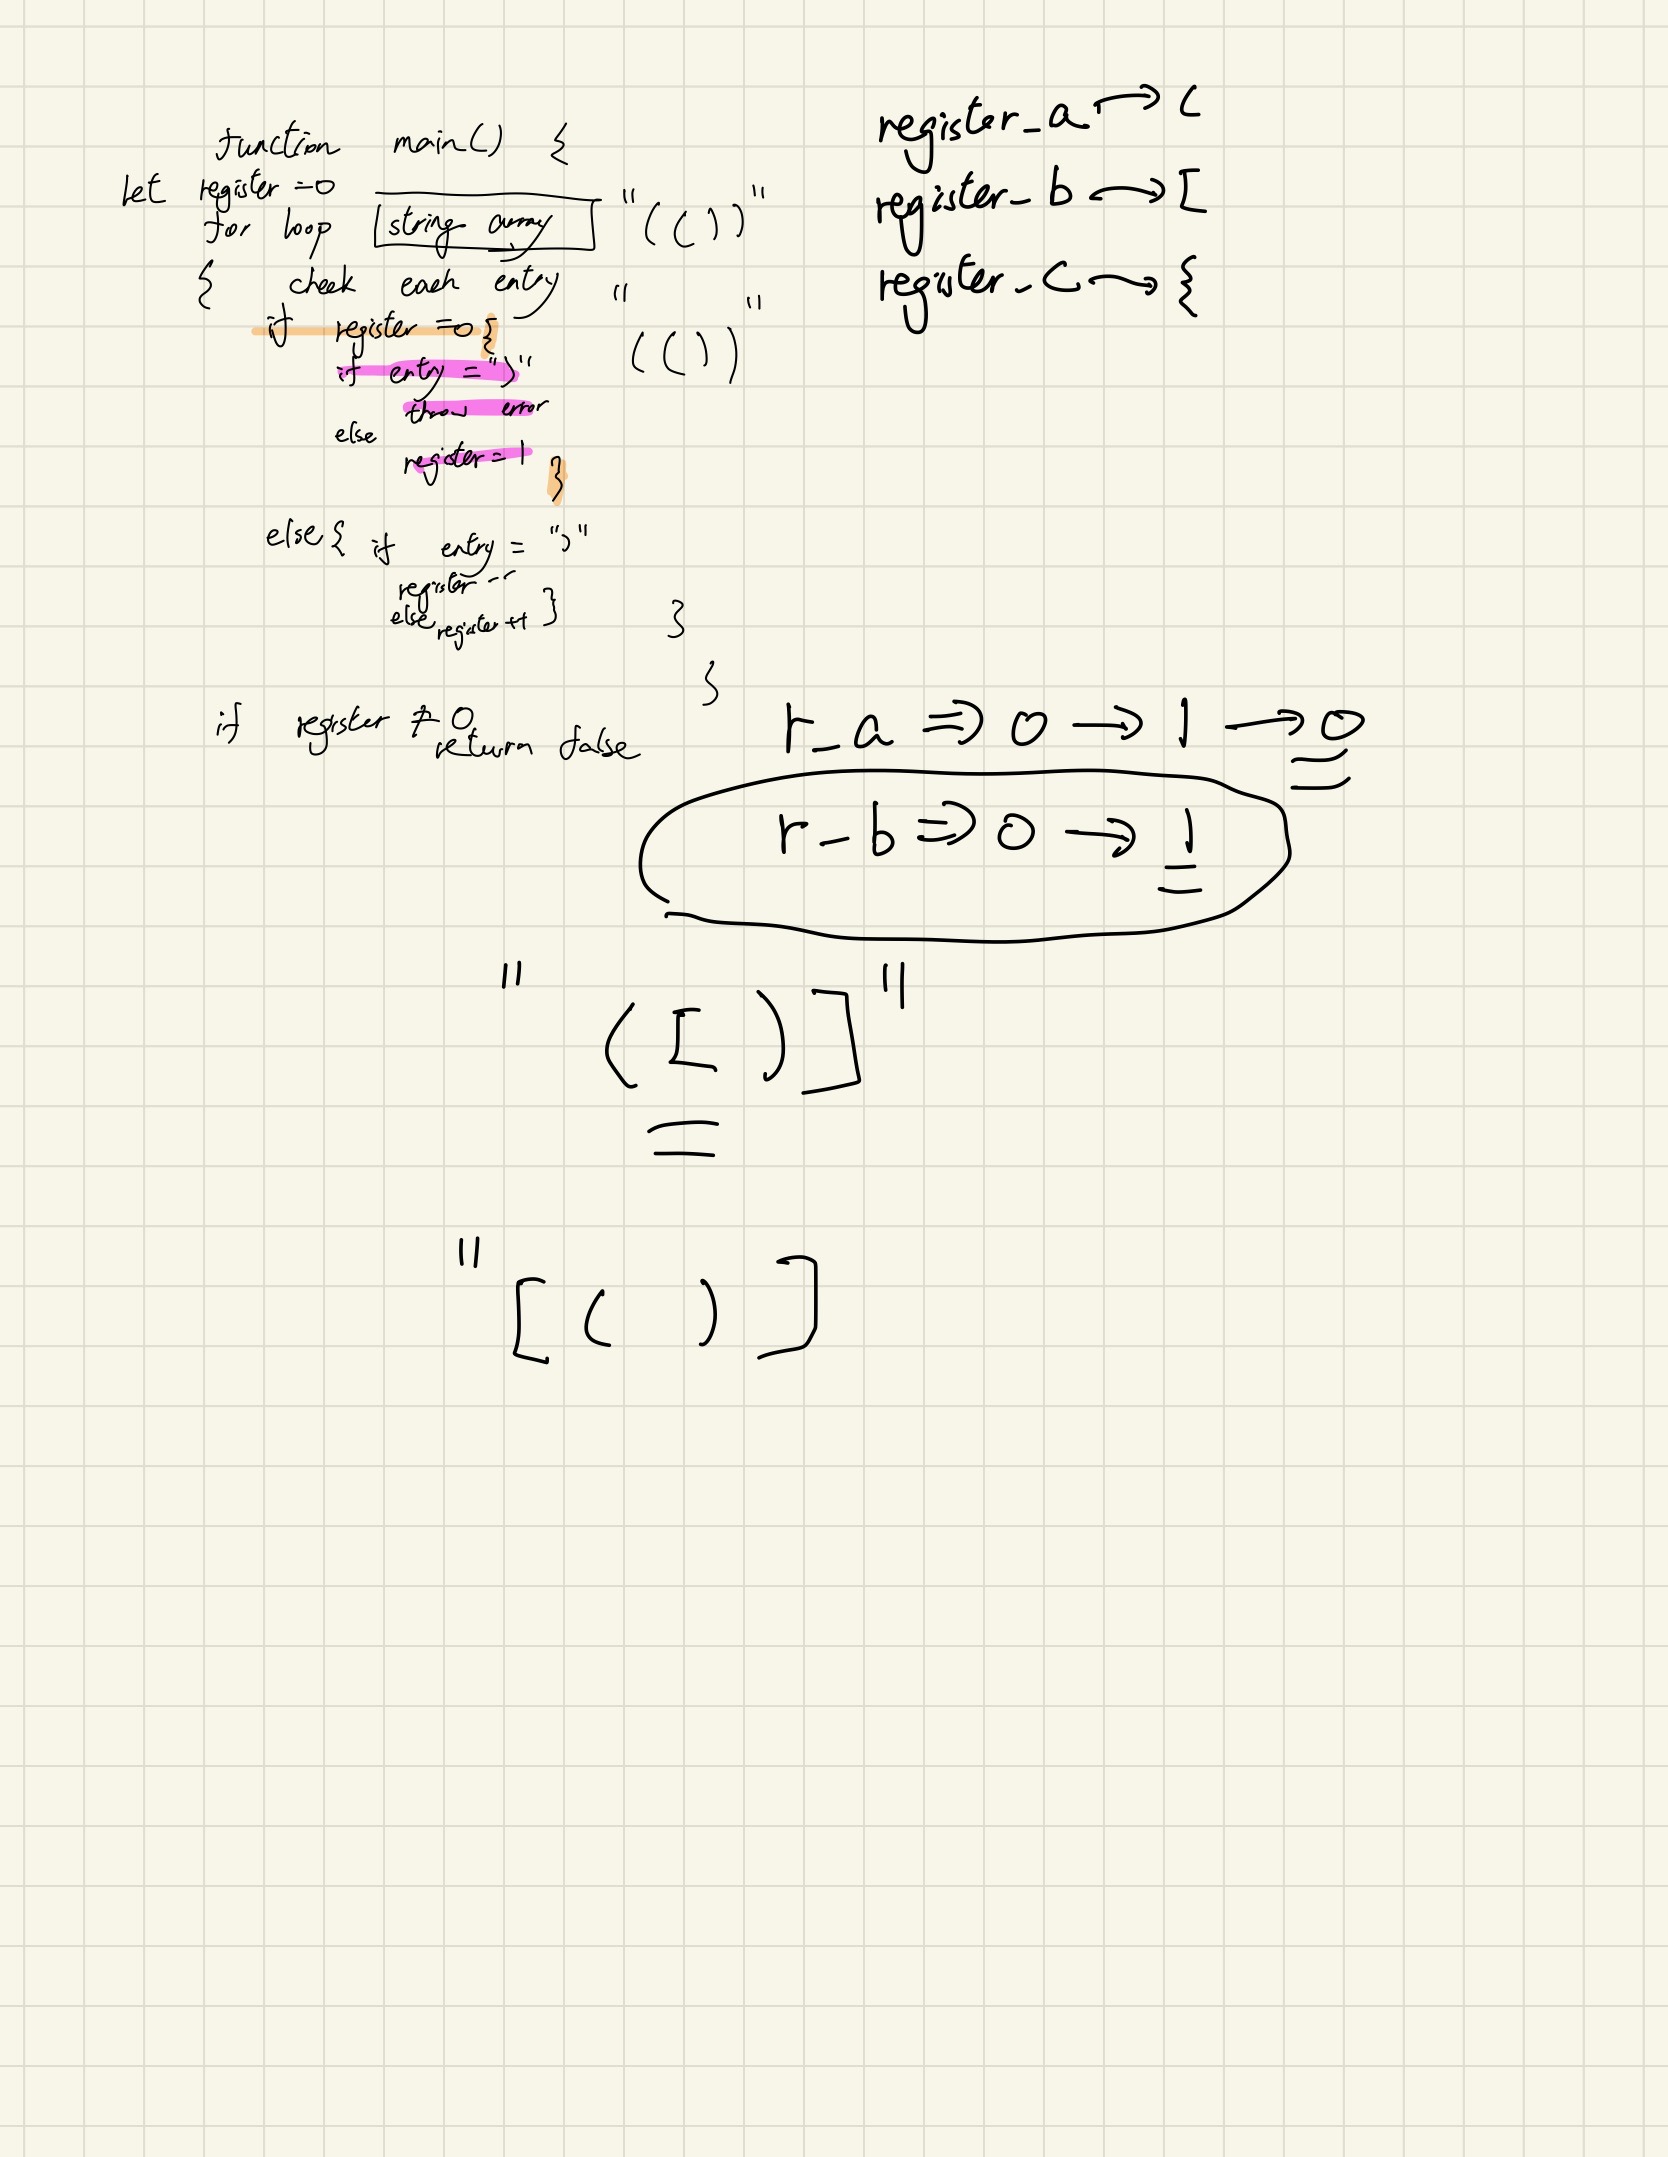 function main() {
let register = 0
for loop string array "(())"
{ check each entry " "
if register = 0 { (())
if entry = ")"
throw error
else
register = 1 }
else { if entry = ")"
register --
else register ++ } }
}
if register ≠ 0
return false
register_a → (
register_b → [
register_c → {
r_a ⇒ 0 → 1 → 0
r_b ⇒ 0 → 1
"([)]"
"[()]